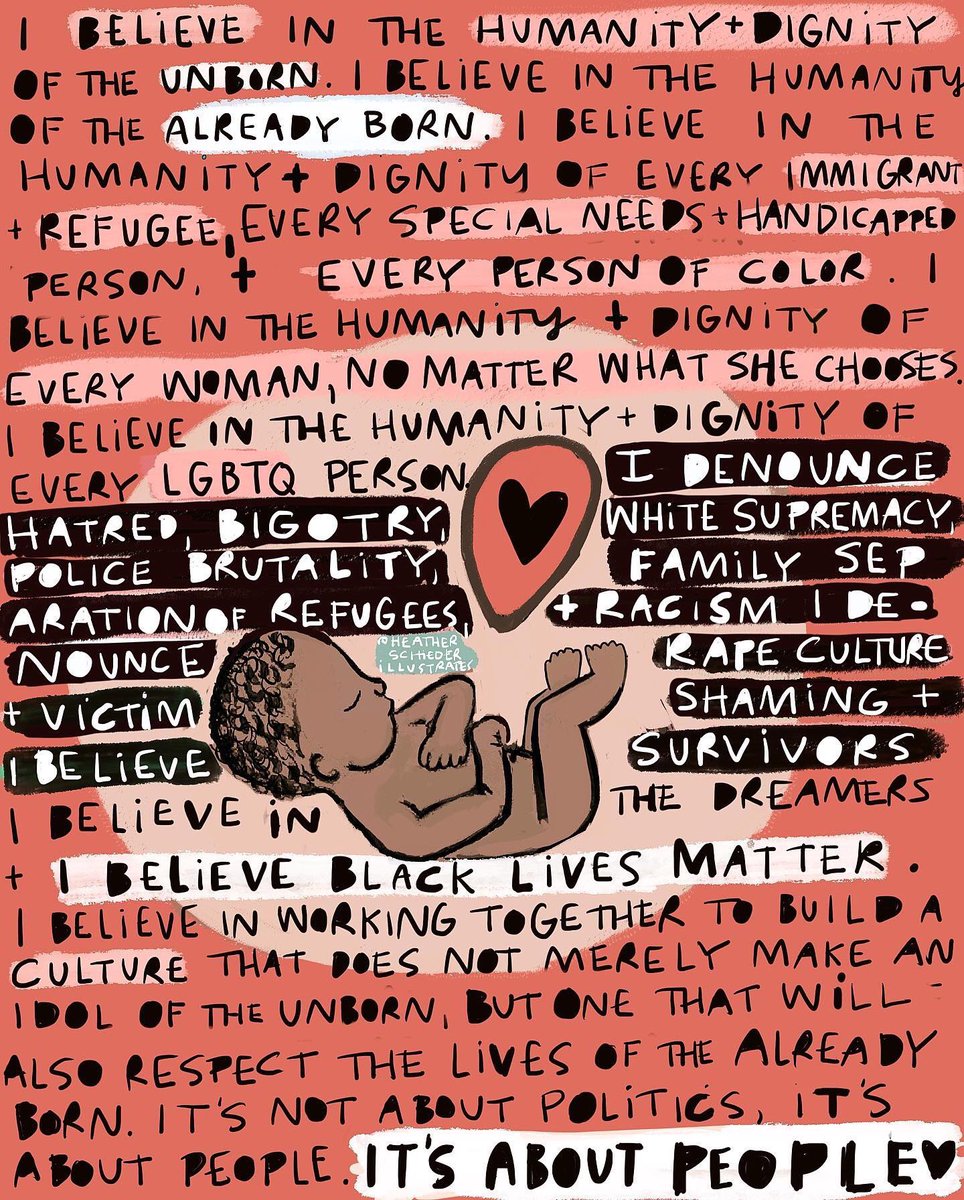 I BELIEVE IN THE HUMANITY + DIGNITY
OF THE UNBORN. I BELIEVE IN THE HUMANITY
OF THE ALREADY BORN. I BELIEVE IN THE
HUMANITY + DIGNITY OF EVERY IMMIGRANT
+ REFUGEE, EVERY SPECIAL NEEDS + HANDICAPPED
PERSON, + EVERY PERSON OF COLOR. I
BELIEVE IN THE HUMANITY + DIGNITY OF
EVERY WOMAN, NO MATTER WHAT SHE CHOOSES.
I BELIEVE IN THE HUMANITY + DIGNITY OF
EVERY LGBTQ PERSON. I DENOUNCE
HATRED, BIGOTRY, WHITE SUPREMACY,
POLICE BRUTALITY, FAMILY SEP
ARATION OF REFUGEES, + RACISM I DE-
NOUNCE RAPE CULTURE
+ VICTIM SHAMING +
I BELIEVE SURVIVORS
I BELIEVE IN THE DREAMERS
+ I BELIEVE BLACK LIVES MATTER.
I BELIEVE IN WORKING TOGETHER TO BUILD A
CULTURE THAT DOES NOT MERELY MAKE AN
IDOL OF THE UNBORN, BUT ONE THAT WILL -
ALSO RESPECT THE LIVES OF THE ALREADY
BORN. IT'S NOT ABOUT POLITICS, IT'S
ABOUT PEOPLE. IT'S ABOUT PEOPLE♥
@HEATHER
SCHIEDER
ILLUSTRATES